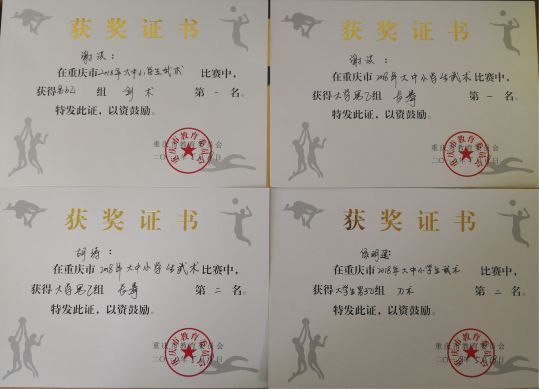 获奖证书
在重庆市2018年大中小学生武术 比赛中,
获得 组 剑术 第一名。
特发此证，以资鼓励。
重庆市教育委员会
获奖证书
在重庆市2018年大中小学生武术 比赛中,
获得大学男乙组 长拳 第一名。
特发此证，以资鼓励。
重庆市教育委员会
获奖证书
胡 :
在重庆市2018年大中小学生武术 比赛中,
获得大学男乙组 长拳 第二名。
特发此证，以资鼓励。
重庆市教育委员会
获奖证书
在重庆市2018年大中小学生武术 比赛中,
获得大学生男乙组 刀术 第二名。
特发此证，以资鼓励。
重庆市教育委员会